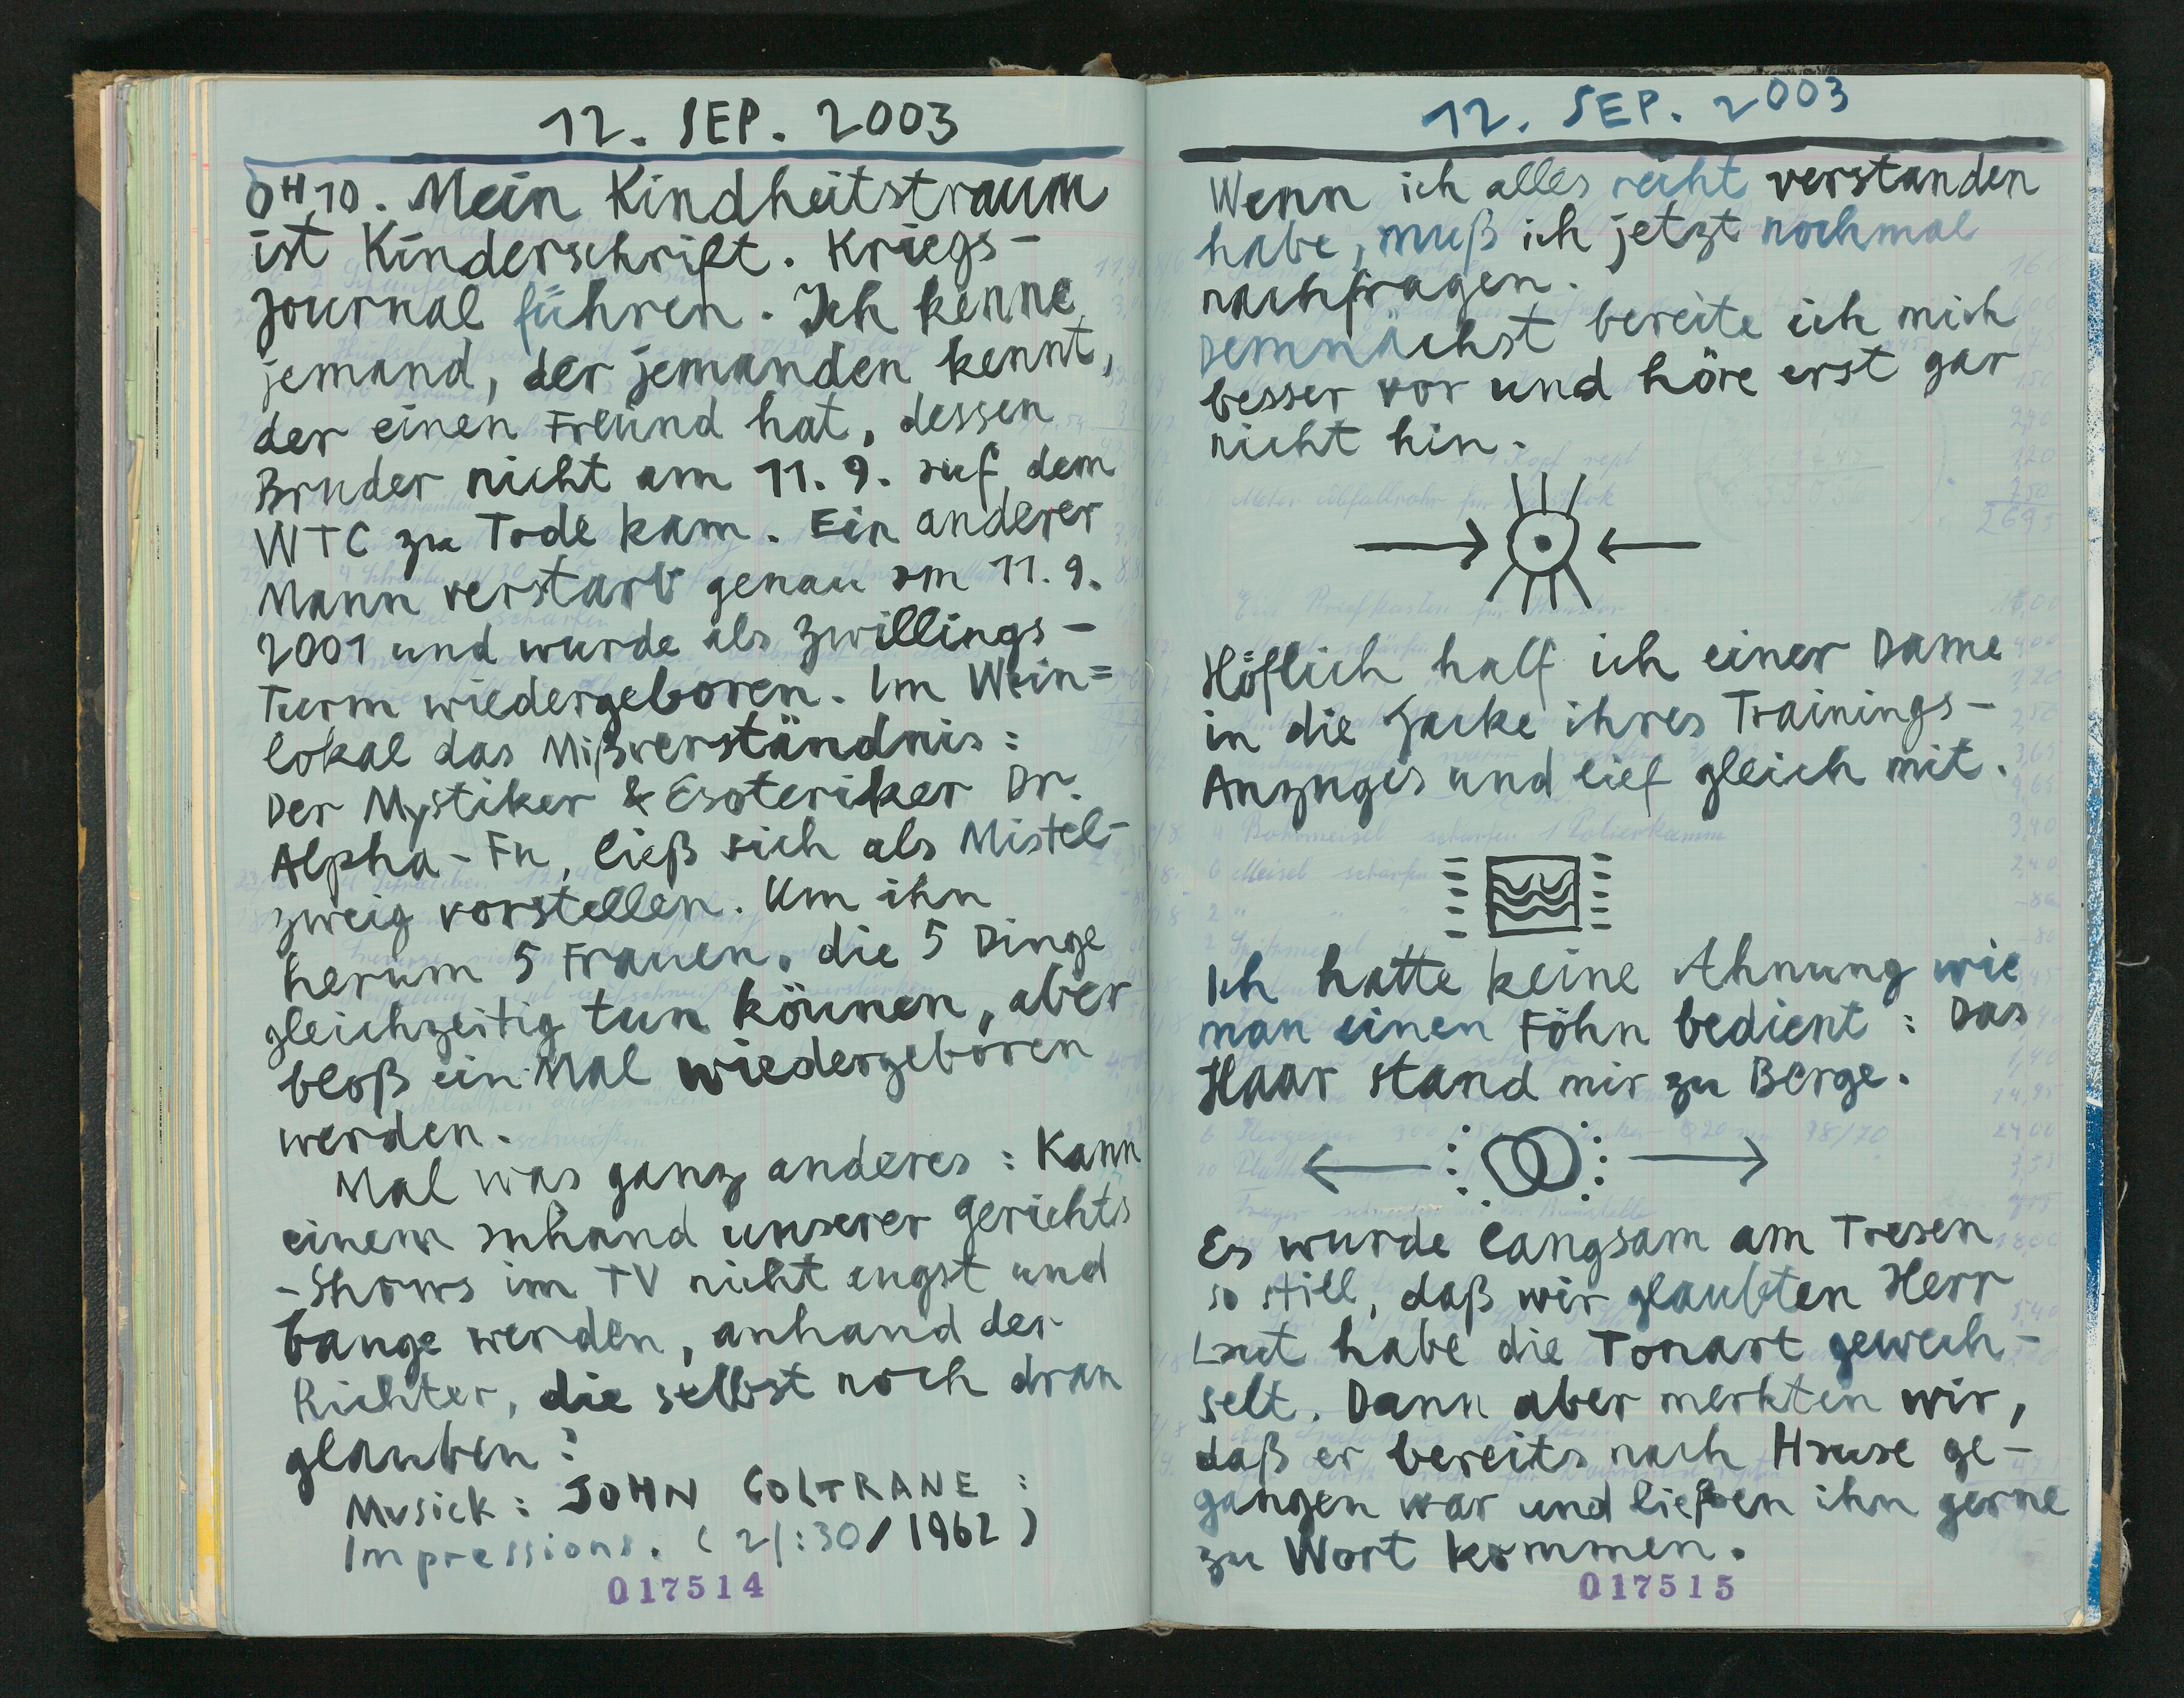 12. SEP. 2003
0H10. Mein Kindheitstraum
ist Kinderschrift. Kriegs-
Journal führen. Ich kenne
jemand, der jemanden kennt,
der einen Freund hat, dessen
Bruder nicht am 11. 9. auf dem
WTC zu Tode kam. Ein anderer
Mann verstarb genau am 11. 9.
2001 und wurde als Zwillings-
Turm wiedergeboren. Im Wein=
lokal das Mißverständnis:
Der Mystiker & Esoteriker Dr.
Alpha-Fu, ließ sich als Mistel-
zweig vorstellen. Um ihn
herum 5 Frauen, die 5 Dinge
gleichzeitig tun können, aber
bloß ein Mal wiedergeboren
werden.
Mal was ganz anderes: Kann
einem anhand unserer Gerichts
-Shows im TV nicht angst und
bange werden, anhand der
Richter, die selbst noch dran
glauben?
Musick: JOHN COLTRANE:
Impressions. (21:30/1962)
017514
12. SEP. 2003
Wenn ich alles recht verstanden
habe, muß ich jetzt nochmal
nachfragen.
Demnächst bereite ich mich
besser vor und höre erst gar
nicht hin.
Höflich half ich einer Dame
in die Jacke ihres Trainings-
Anzuges und lief gleich mit.
Ich hatte keine Ahnung wie
man einen Föhn bedient: Das
Haar stand mir zu Berge.
Es wurde langsam am Tresen
so still, daß wir glaubten Herr
Laut habe die Tonart gewech-
selt. Dann aber merkten wir,
daß er bereits nach Hause ge-
gangen war und ließen ihn gerne
zu Wort kommen.
017515